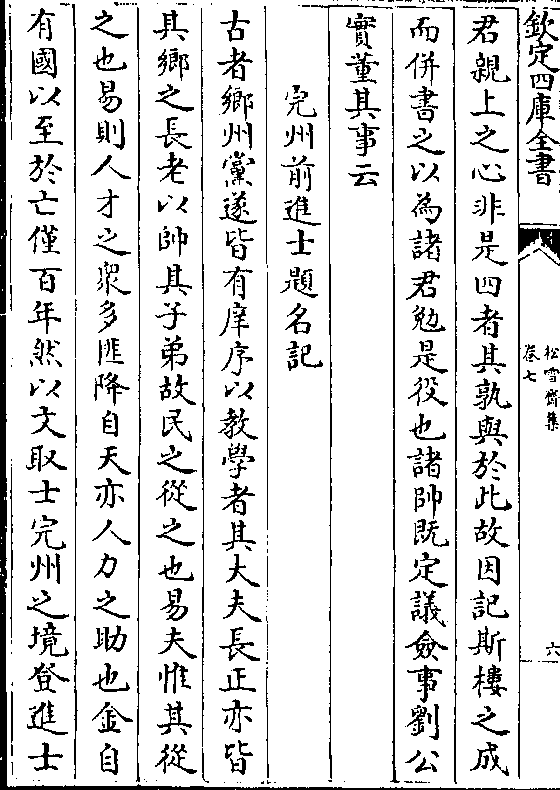 欽定四庫全書
松雪齋集
卷七
六
君親上之心非是四者其孰與於此故因記斯樓之成
而併書之以為諸君勉是役也諸帥既定議僉事劉公
實董其事云
完州前進士題名記
古者鄉州黨遂皆有庠序以教學者其大夫長正亦皆
其鄉之長老以帥其子弟故民之從之也易夫惟其從
之也易則人才之衆多匪降自天亦人力之助也金自
有國以至於亡僅百年然以文取士完州之境登進士